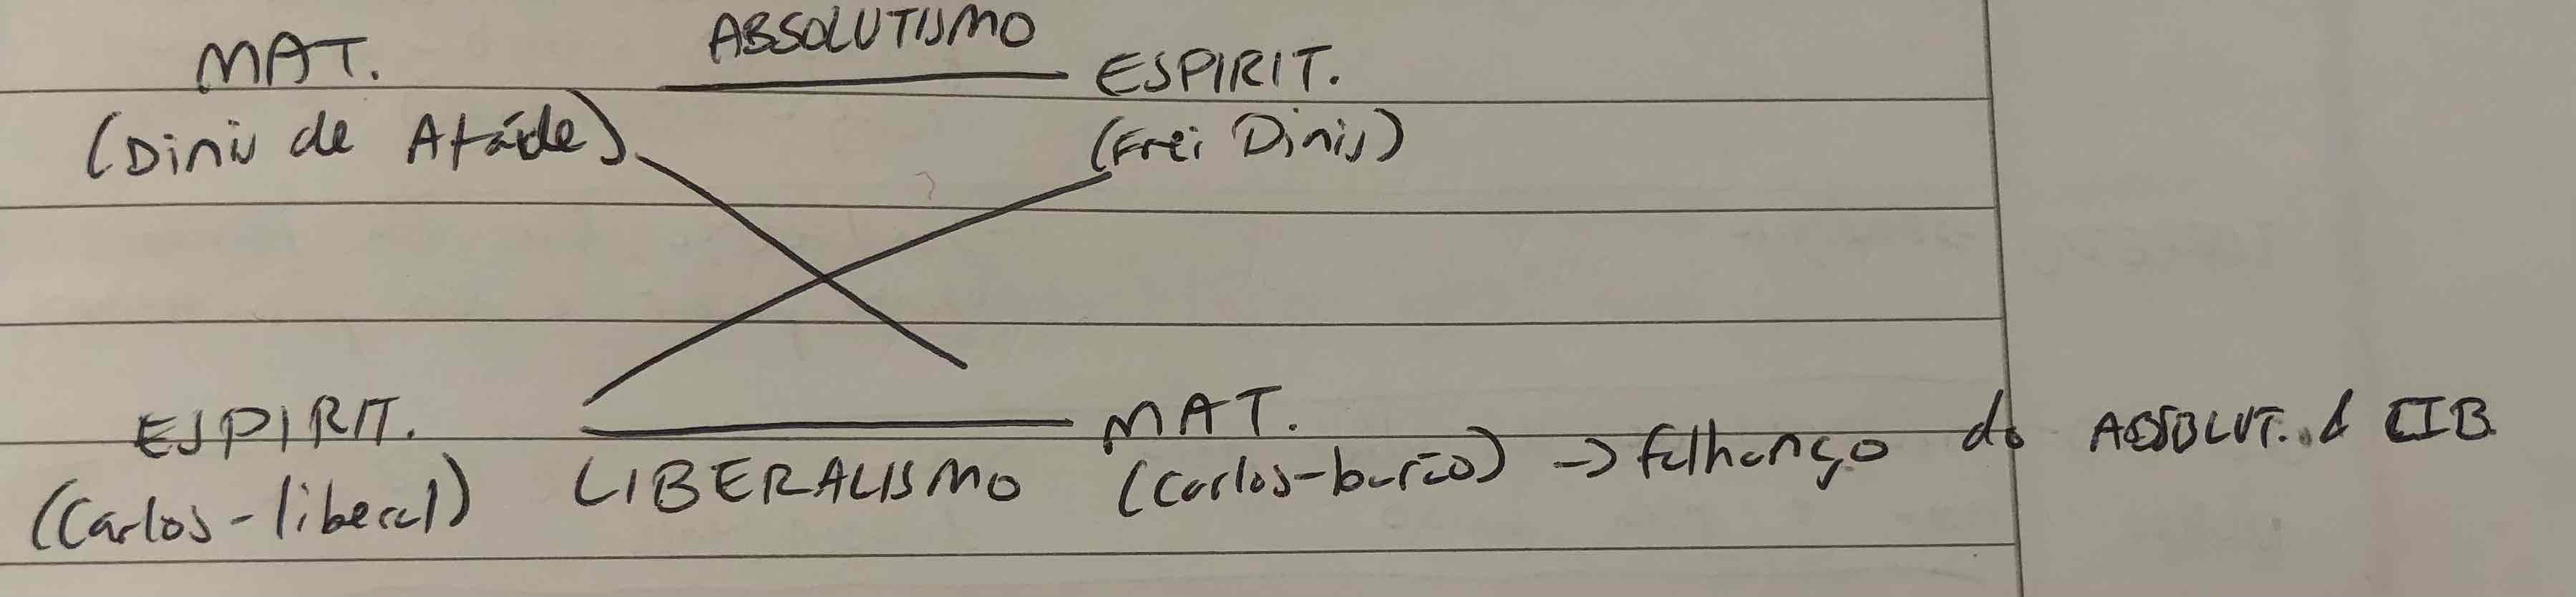 MAT. ABSOLUTISMO ESPIRIT.
(Dinis de Ataíde) (Frei Dinis)
ESPIRIT. MAT.
(Carlos-liberal) LIBERALISMO (Carlos-barão) → falhanço do ABSOLUT. & LIB.